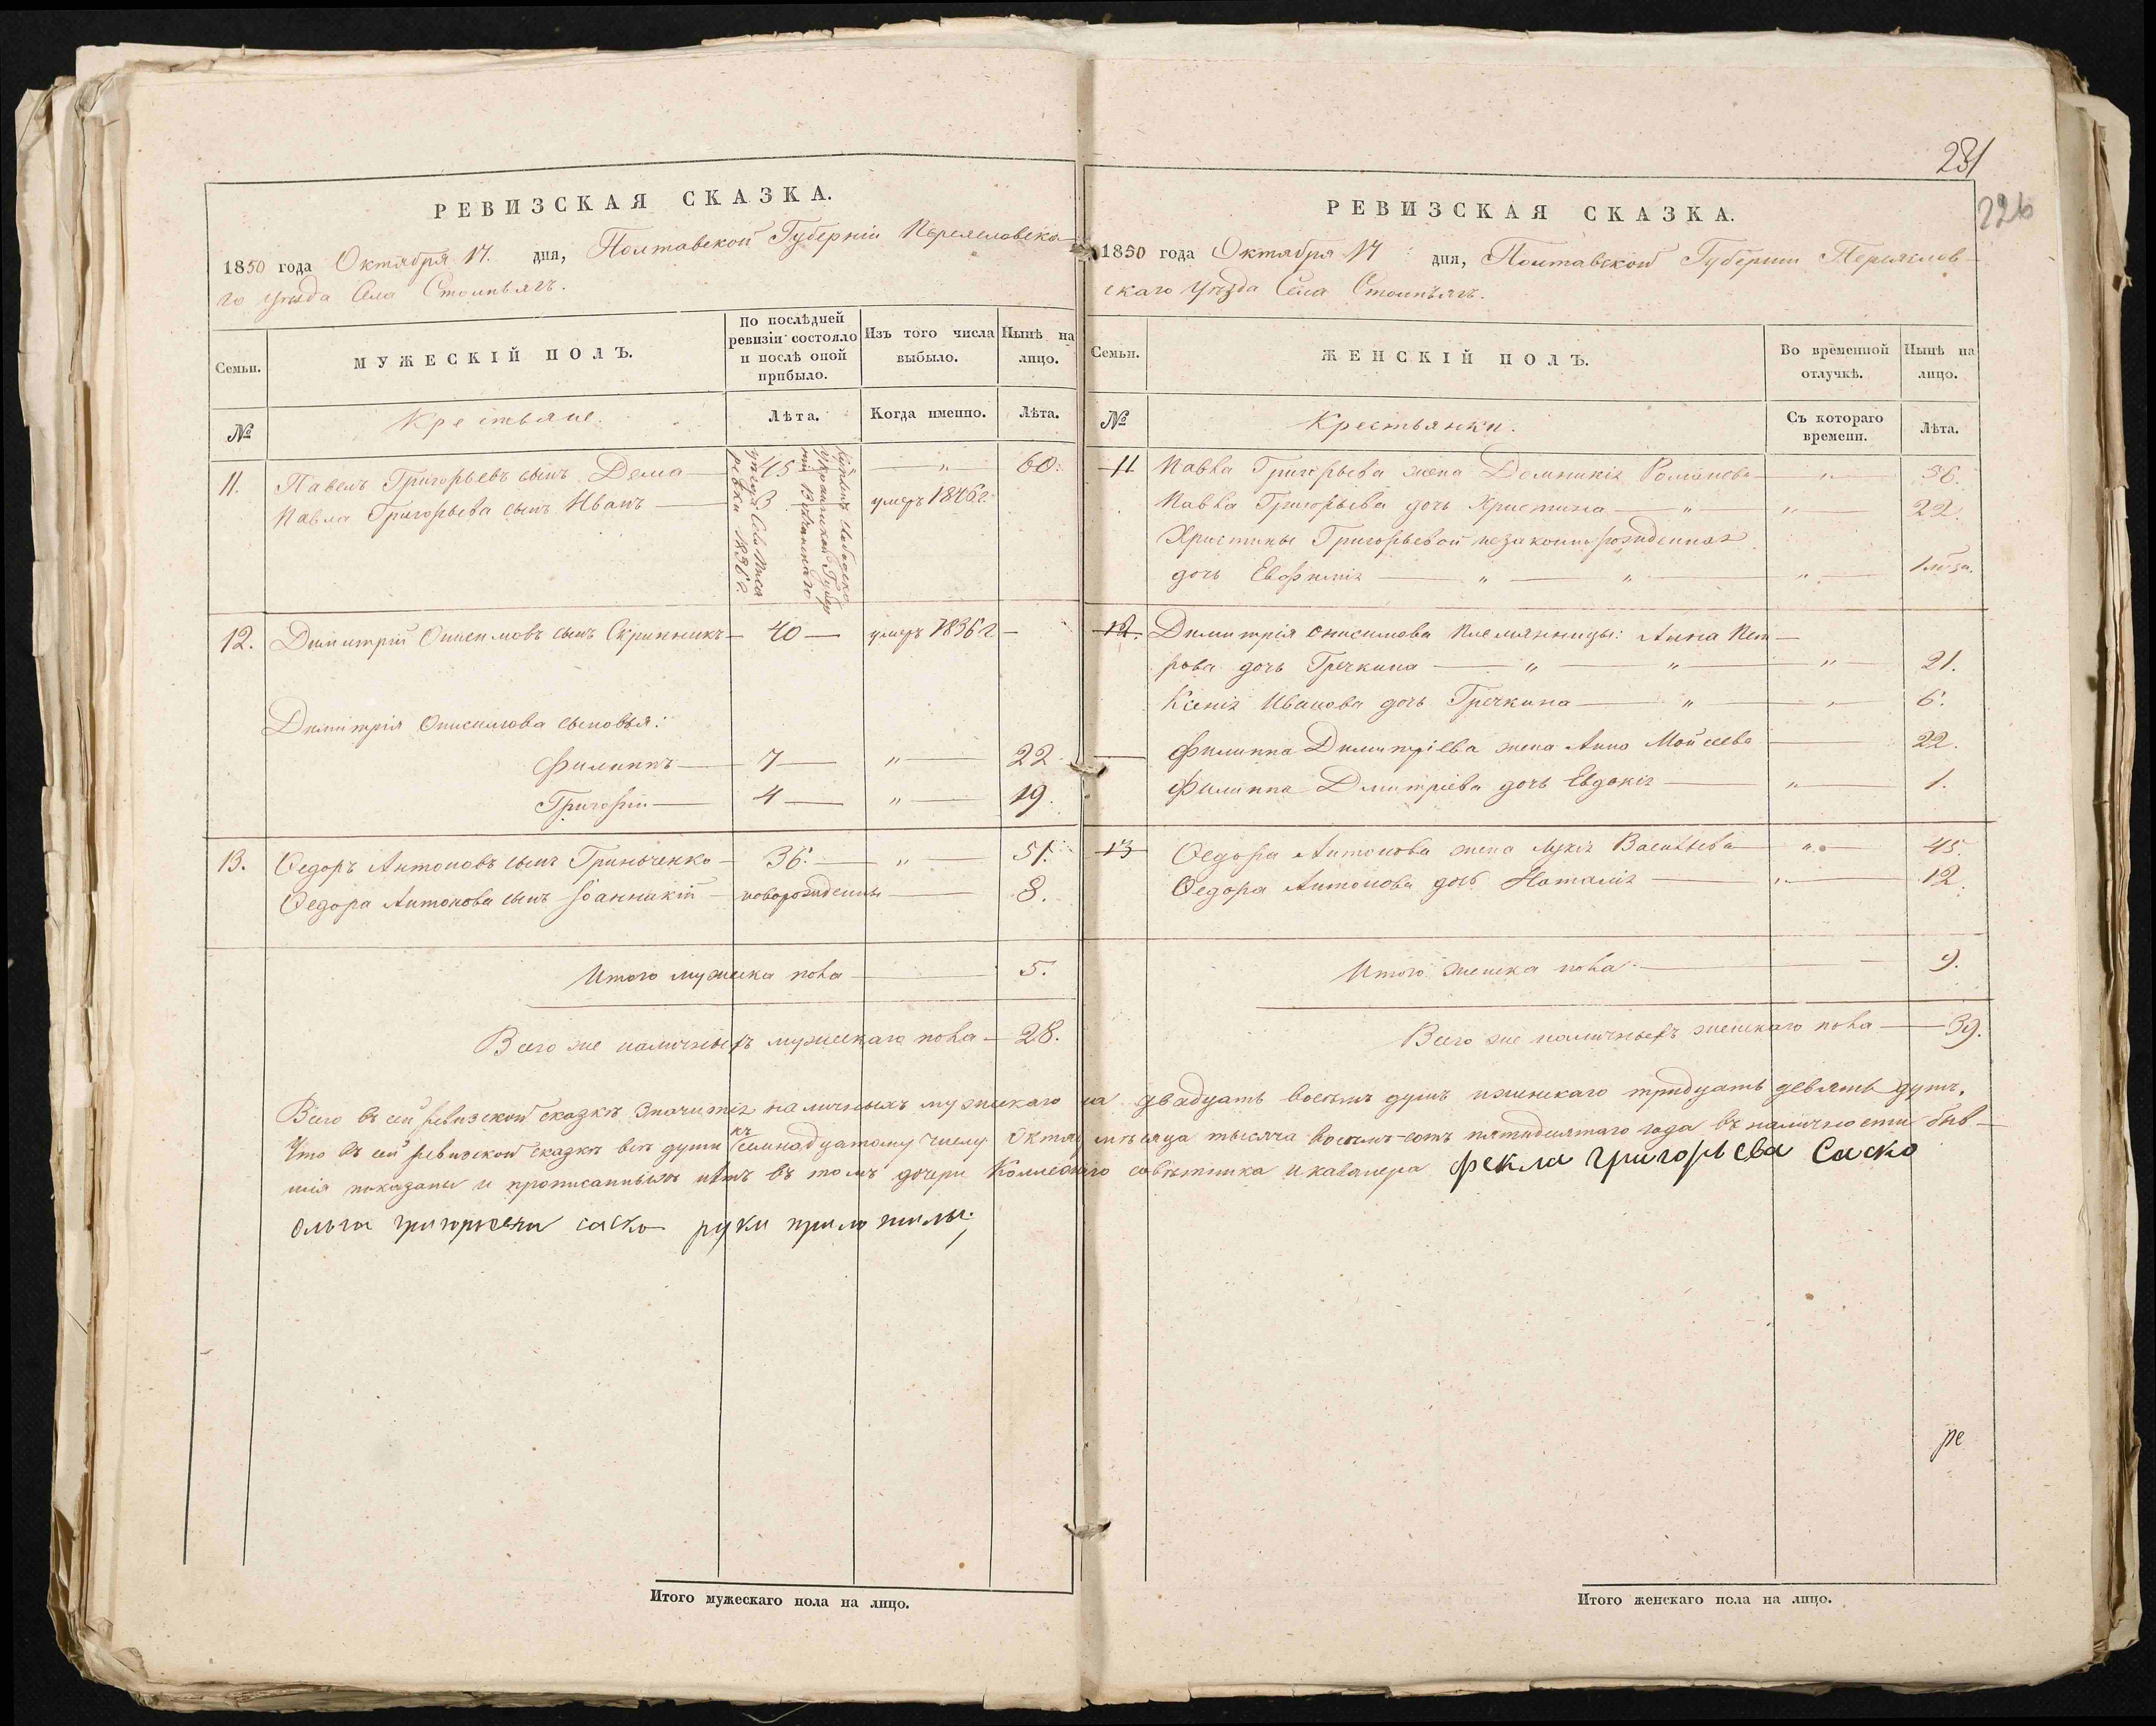 РЕВИЗСКАЯ СКАЗКА.
1850 года Октября 17. дня, Полтавской Губерніи Переяславска-
го уѣзда Села Стовпягъ.
Семьи.
МУЖЕСКІЙ ПОЛЪ.
По послѣдней ревизіи состояло и послѣ оной прибыло.
Изъ того числа выбыло.
Нынѣ на лицо.
№
Крестьяне.
Лѣта.
Когда именно.
Лѣта.
11. Павелъ Григорьевъ сынъ Дема — 45 — " — 60.
Павла Григорьева сынъ Иванъ — 3 умеръ 1846 г.
12. Димитрій Онисимовъ сынъ Скрипникъ — 40 — умеръ 1836 г —
Димитрія Онисимова сыновья:
Филиппъ — 7 — " — 22
Григорій — 4 — " — 19.
13. Ѳедоръ Антоновъ сынъ Гриноченко — 36. — " — 51.
Ѳедора Антонова сынъ Іоанникій — новорожденный — 8.
Итого мужеска пола — 5.
Всего же наличныхъ мужескаго пола — 28.
231
226
РЕВИЗСКАЯ СКАЗКА.
1850 года Октября 17 дня, Полтавской Губерніи Переяслов-
скаго уѣзда Села Стовпягъ.
Семьи.
ЖЕНСКІЙ ПОЛЪ.
Во временной отлучкѣ.
Нынѣ на лицо.
№
Крестьянки.
Съ котораго времени.
Лѣта.
11 Павла Григорьева жена Домникія Романова — " — 56.
Павла Григорьева дочь Христина — " — " — 22.
Христины Григорьевой незаконнорожденная
дочь Евфимія — " — " — "
12. Димитрія Онисимова племянницы: Анна Пет-
рова дочь Гречкина — " — " — " — 21.
Ксенія Иванова дочь Гречкина — " — " — 6.
Филиппа Димитріева жена Анна Мойсеева — 22.
Филиппа Дмитріева дочь Евдокія — " — 1.
13 Ѳедора Антонова жена Лукія Васильева — " — 45.
Ѳедора Антонова дочь Наталія — " — 12.
Итого женска пола — 9.
Всего же наличныхъ женскаго пола — 39.
Всего въ сей ревизской сказкѣ значится наличныхъ мужескаго двадцать восемь душъ и женскаго тридцать девять душъ.
Что въ сей ревизской сказкѣ всѣ души къ семнадцатому числу Октяб мѣсяца тысяча восемь-сотъ пятидесятаго года въ наличности быв-
шія показаны и прописанныхъ нѣтъ въ томъ дочери Коллежскаго совѣтника и кавалера Фекла Григорьева Саско
Ольга Григорьева Саско руки приложилы;
ре
Итого мужескаго пола на лицо.
Итого женскаго пола на лицо.